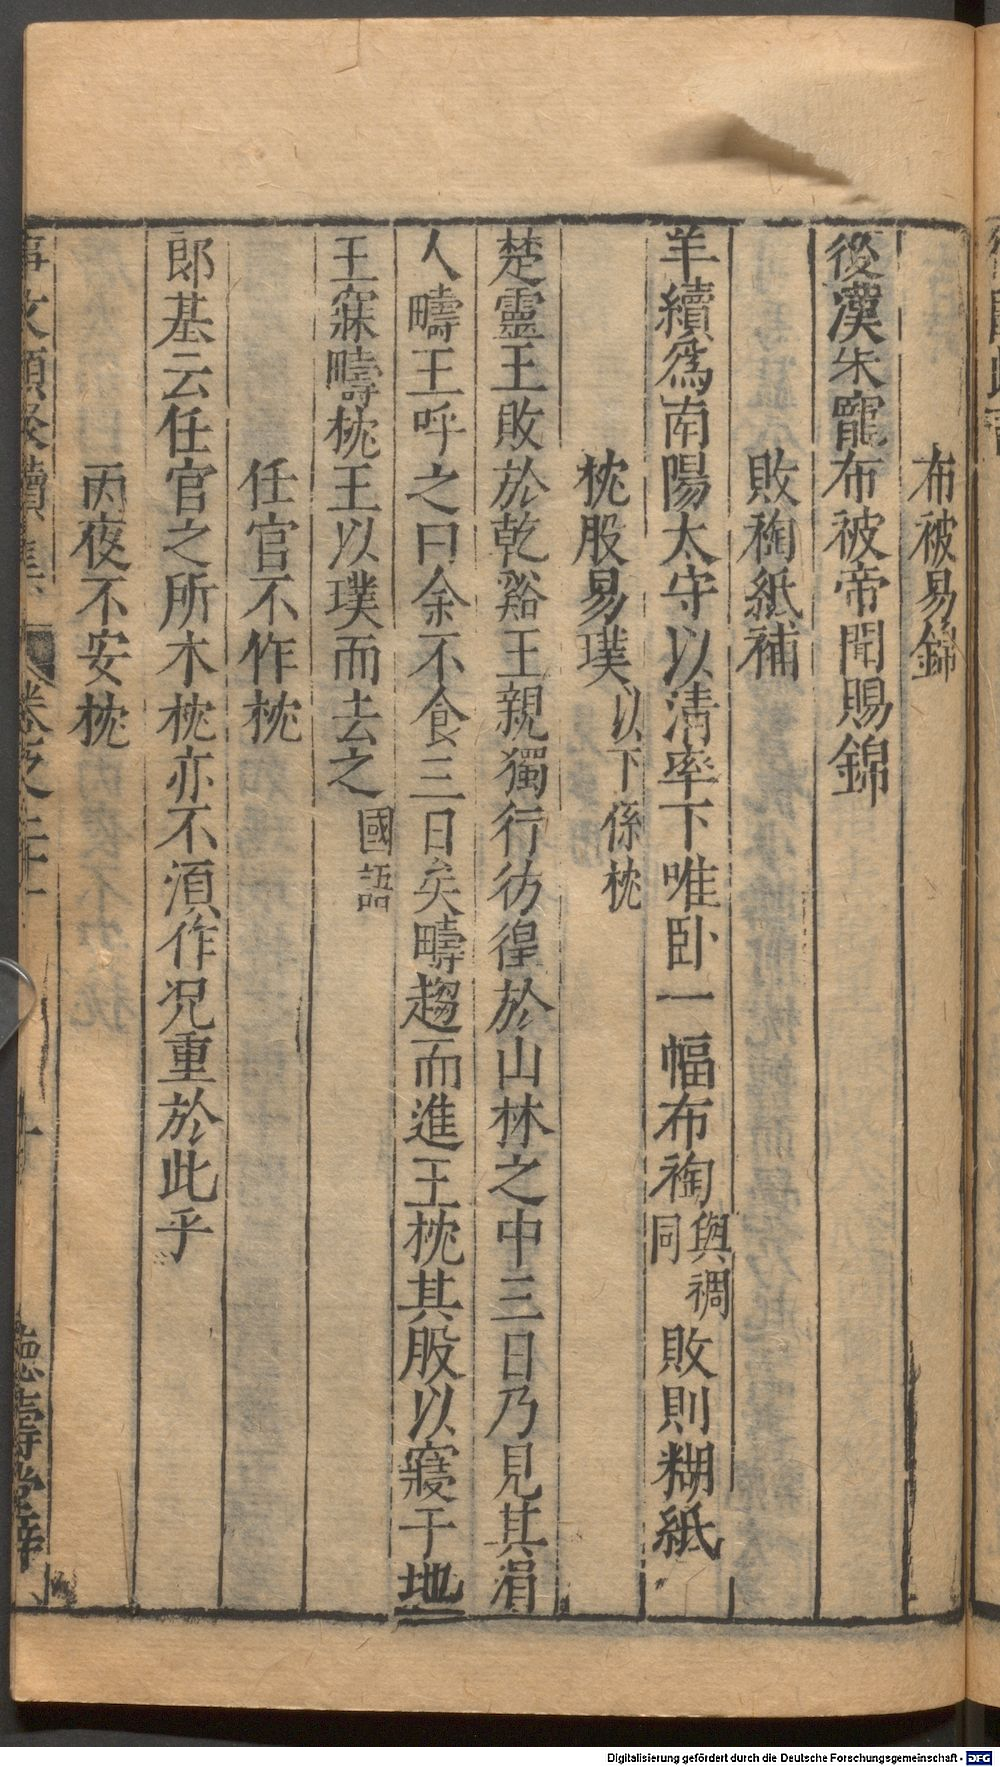 布被易錦
後漢朱寵布被帝聞賜錦
敗裪紙補
羊續爲南陽太守以清率下唯卧一幅布裪與裯同敗則糊紙
枕股易璞以下係枕
楚靈王敗於乾谿王親獨行彷徨於山林之中三日乃見其涓
人疇王呼之曰余不食三日矣疇趨而進王枕其股以寢于地
王寐疇枕王以璞而去之國語
任官不作枕
郎基云任官之所木枕亦不湏作况重於此乎
丙夜不安枕
事文類聚續集 卷之二十一 十 德壽堂梓
Digitalisierung gefördert durch die Deutsche Forschungsgemeinschaft - DFG